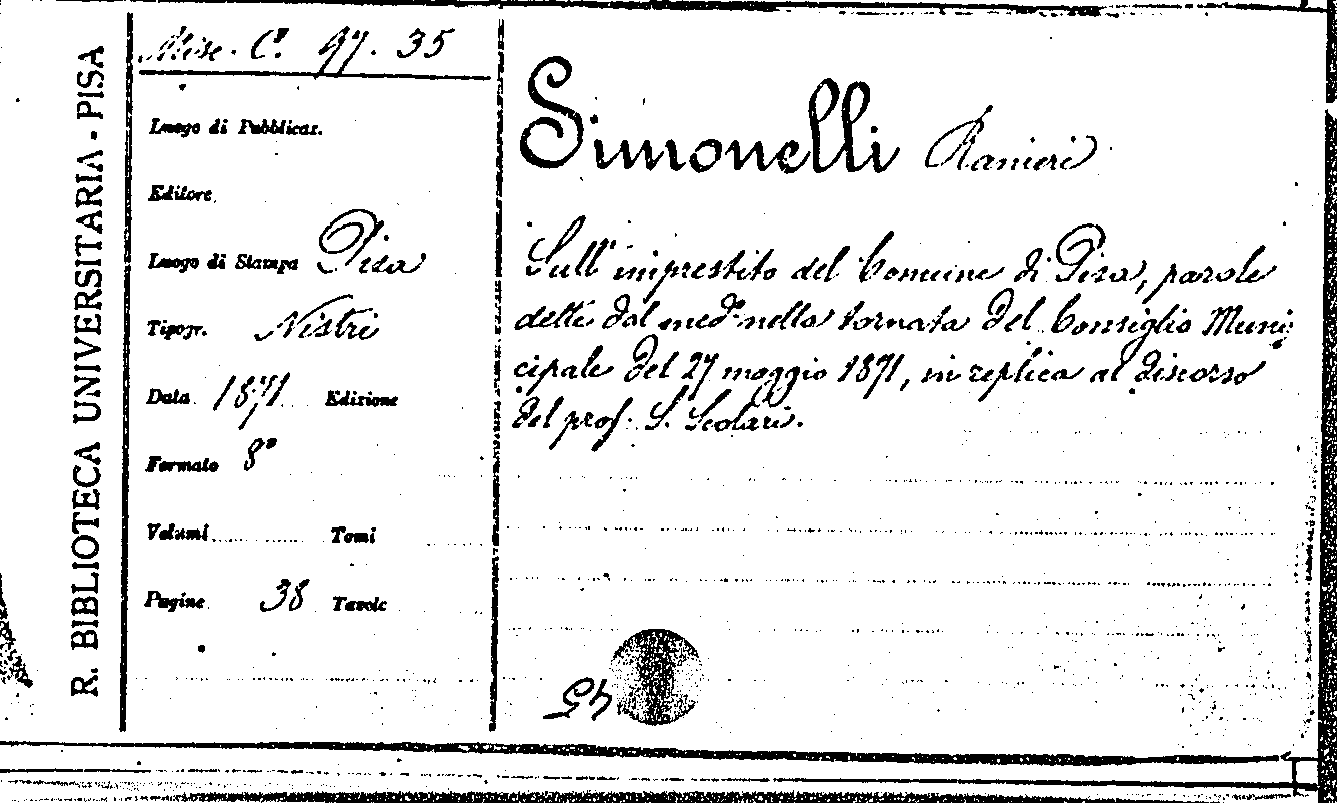 R. BIBLIOTECA UNIVERSITARIA - PISA
Misc. C. 97. 35
Luogo di Pubblicaz.
Editore
Luogo di Stampa Pisa
Tipogr. Nistri
Data 1871 Edizione
Formato 8º
Volumi Tomi
Pagine 38 Tavole
Simonelli Ranieri
Sull'imprestito del Comune di Pisa, parole
dette dal medº nella tornata del Consiglio Muni
cipale del 27 maggio 1871, in replica al discorso
del prof. S. Scolari.